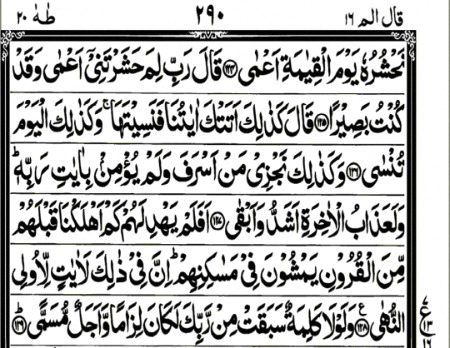 قال الم ١٦ ٢٩٠ طٰهٰ ٢٠
نَحْشُرُهٗ يَوْمَ الْقِيٰمَةِ اَعْمٰى ﴿١٢٤﴾ قَالَ رَبِّ لِمَ حَشَرْتَنِىْٓ اَعْمٰى وَقَدْ
كُنْتُ بَصِيْرًا ﴿١٢٥﴾ قَالَ كَذٰلِكَ اَتَتْكَ اٰيٰتُنَا فَنَسِيْتَهَا ۚ وَكَذٰلِكَ الْيَوْمَ
تُنْسٰى ﴿١٢٦﴾ وَكَذٰلِكَ نَجْزِىْ مَنْ اَسْرَفَ وَلَمْ يُؤْمِنْۢ بِاٰيٰتِ رَبِّهٖ ؕ
وَلَعَذَابُ الْاٰخِرَةِ اَشَدُّ وَاَبْقٰى ﴿١٢٧﴾ اَفَلَمْ يَهْدِ لَهُمْ كَمْ اَهْلَكْنَا قَبْلَهُمْ
مِّنَ الْقُرُوْنِ يَمْشُوْنَ فِىْ مَسٰكِنِهِمْ ؕ اِنَّ فِىْ ذٰلِكَ لَاٰيٰتٍ لِّاُولِى
النُّهٰى ﴿١٢٨﴾ ع وَلَوْلَا كَلِمَةٌ سَبَقَتْ مِنْ رَّبِّكَ لَكَانَ لِزَامًا وَّاَجَلٌ مُّسَمًّى ؕ ﴿١٢٩﴾
ع
١٣
١٦